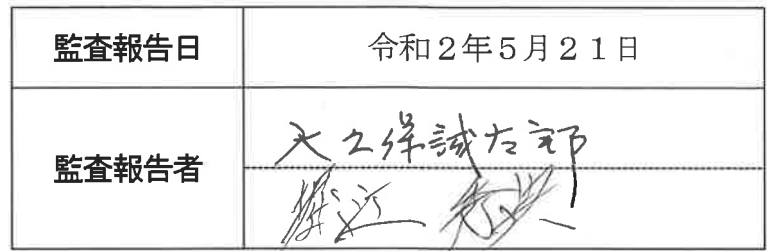 監査報告日 令和2年5月21日
監査報告者 大久保誠太郎